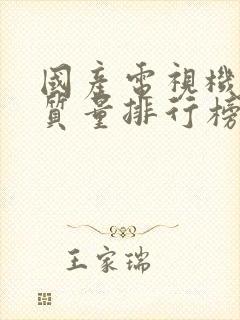 國產電視機
質量排行榜
王家瑞